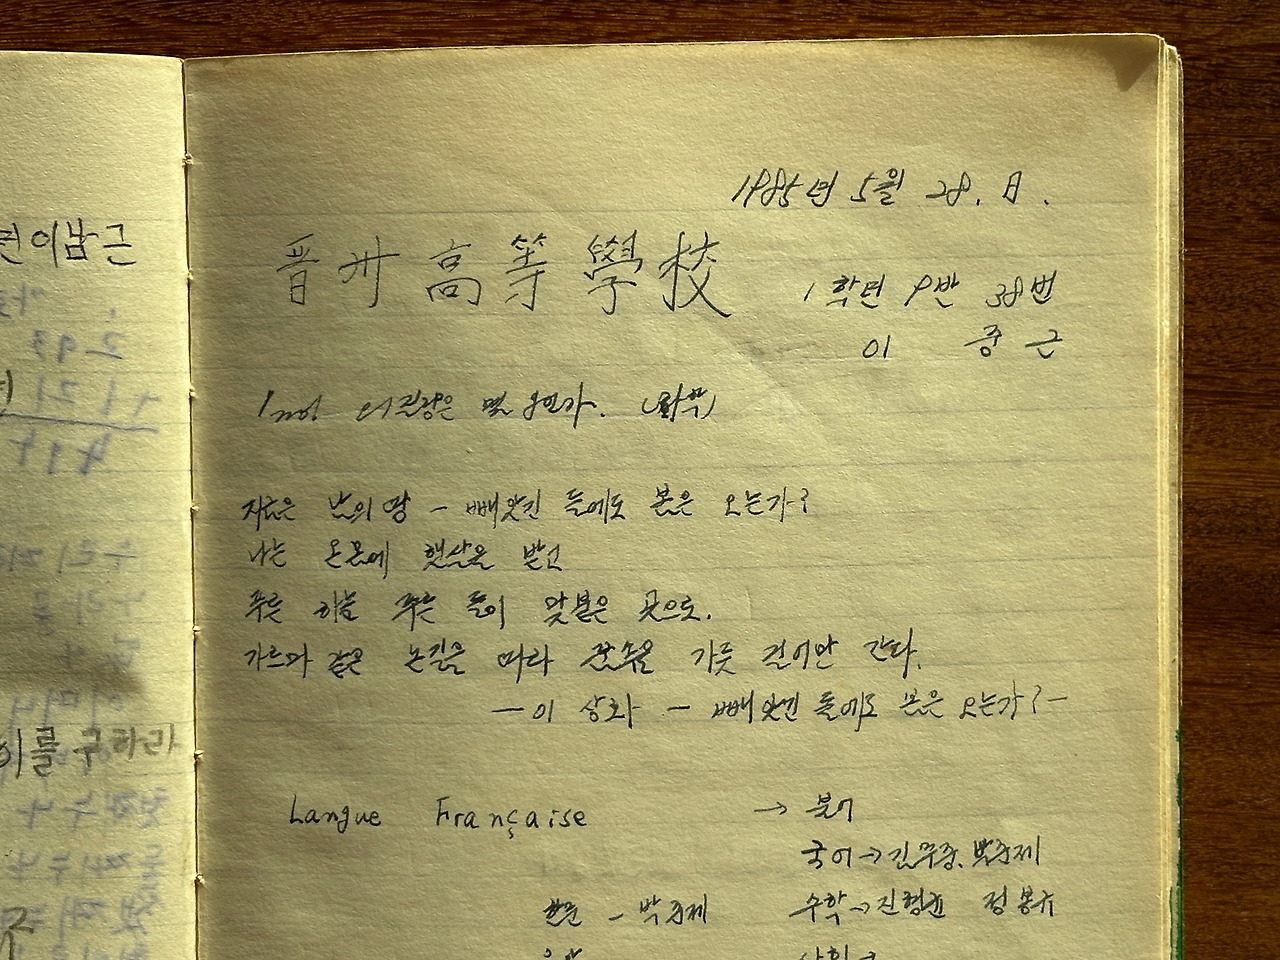 이남근
이를 구하라
1985년 5월 28. 日.
晋州高等學校
1학년 9반 38번
이 중근
1mol 의 질량은 몇 g인가. (화학)
지금은 남의 땅 - 빼앗긴 들에도 봄은 오는가?
나는 온몸에 햇살을 받고
푸른 하늘 푸른 들이 맞붙은 곳으로.
가르마 같은 논길을 따라 꿈속을 가듯 걸어만 간다.
- 이 상화 - 빼앗긴 들에도 봄은 오는가? -
Langue Française → 불어
국어 →
한문 - 박
수학 → 진형균 정봉규